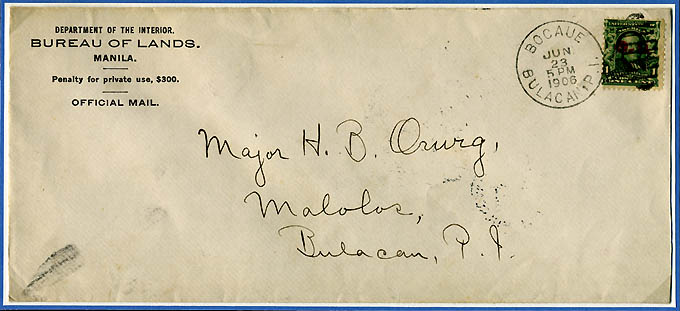 DEPARTMENT OF THE INTERIOR.
BUREAU OF LANDS.
MANILA.
Penalty for private use, $300.
OFFICIAL MAIL.
BOCAUE
JUN
23
5 PM
1906
BULACAN, P.I.
Major H. B. Orwig,
Malolos,
Bulacan, P. I.